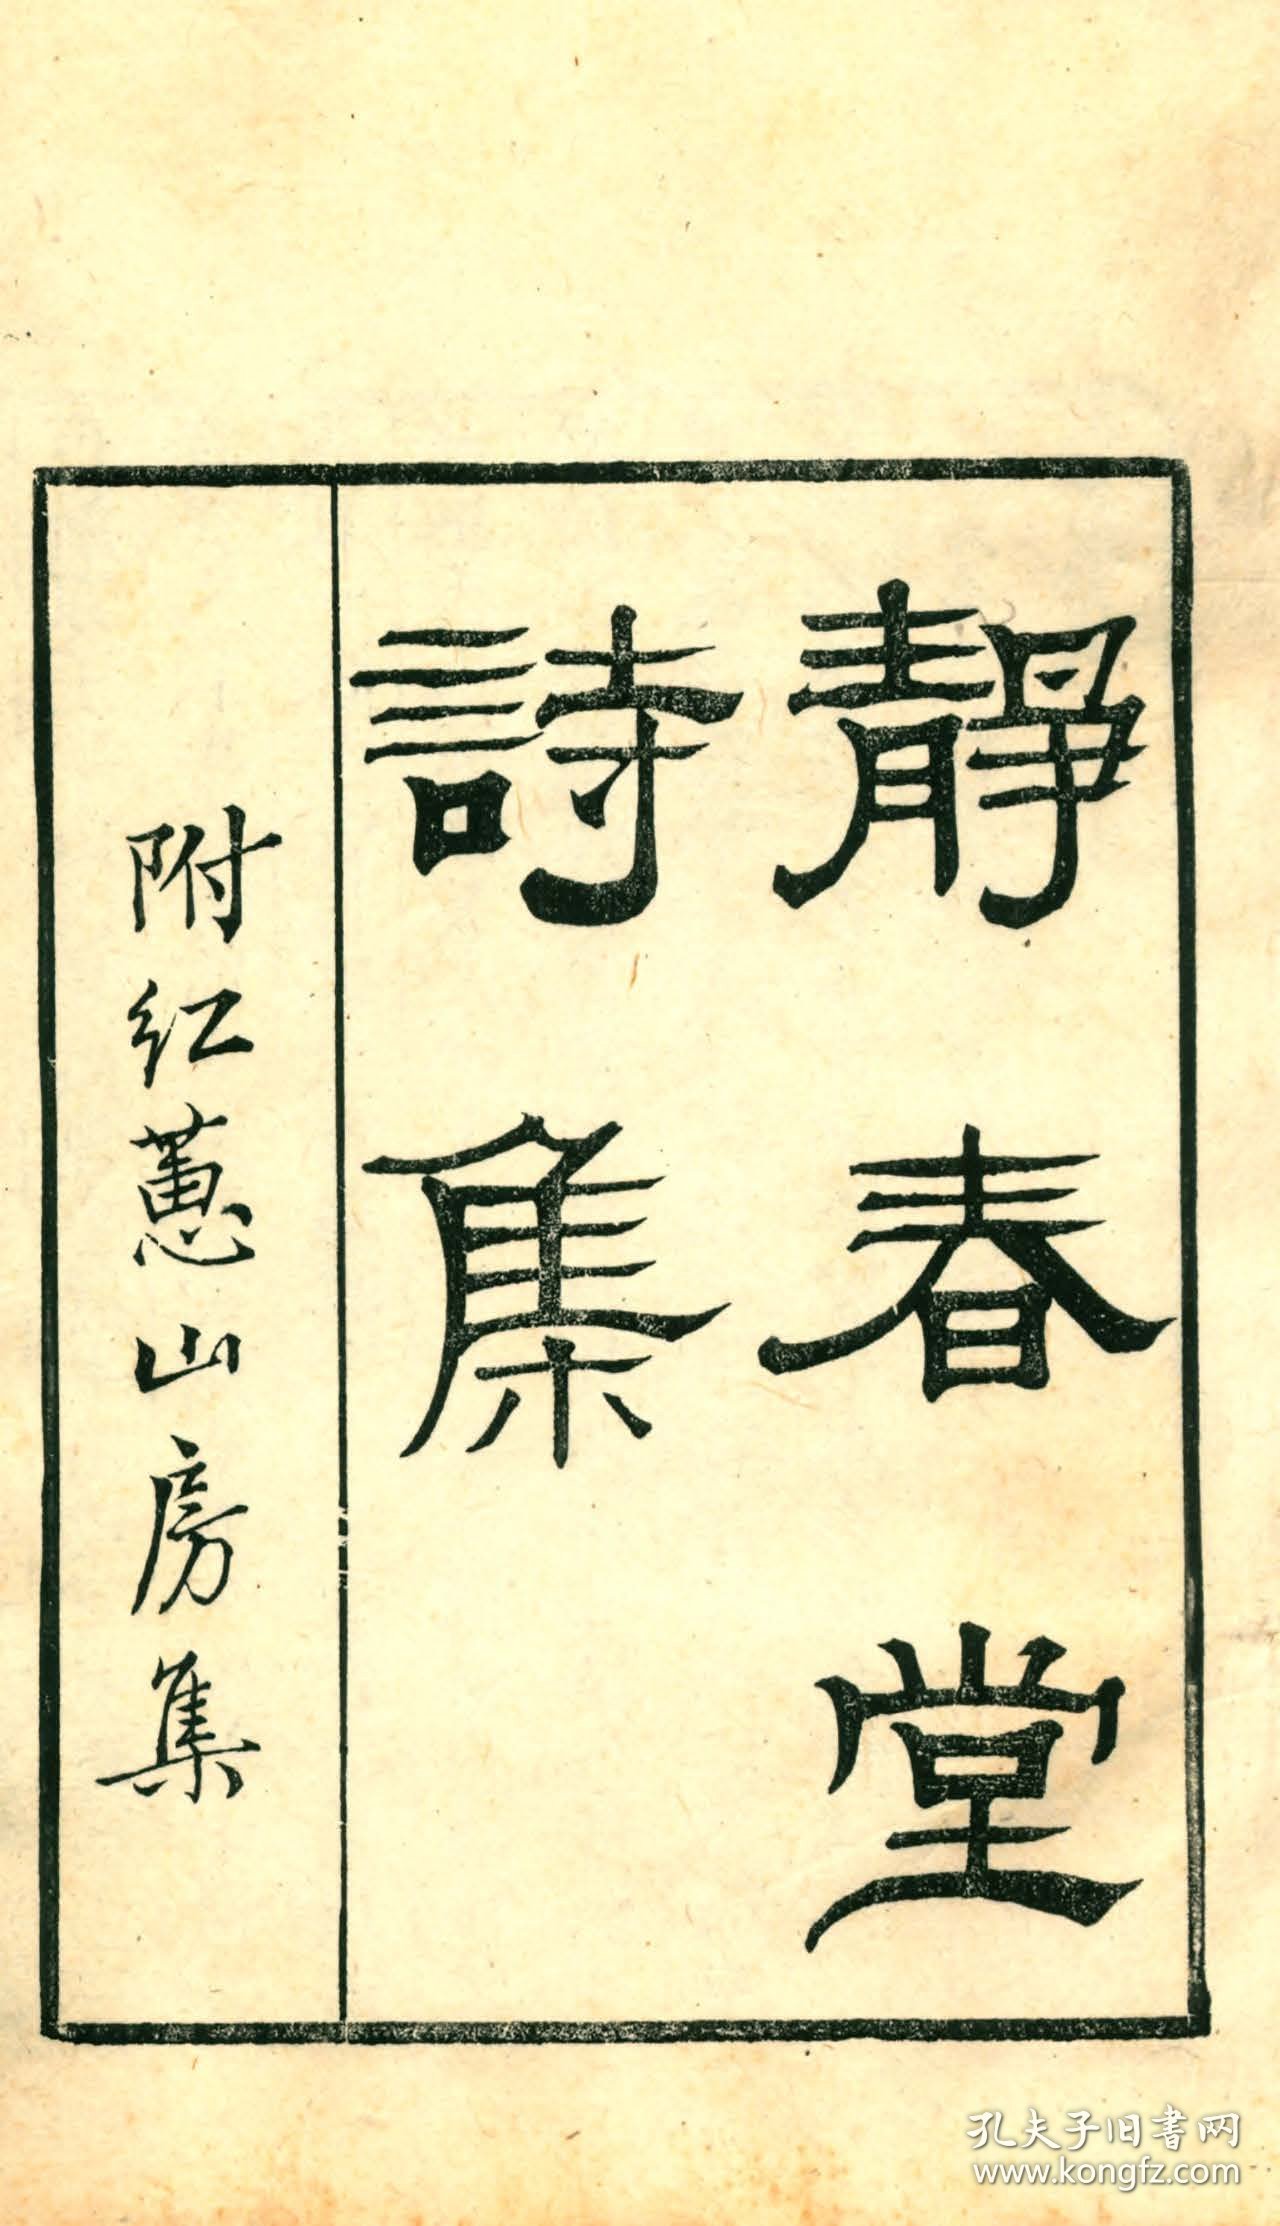 靜春堂
詩集
附紅蕙山房集
孔夫子旧书网
www.kongfz.com